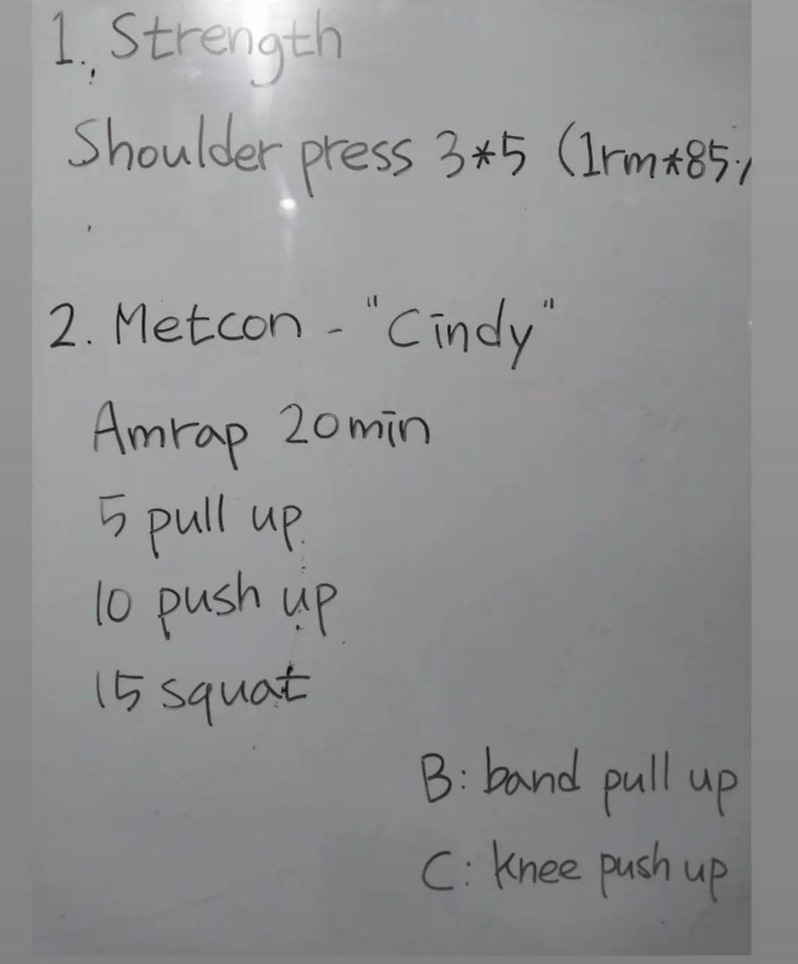 1. Strength
Shoulder press 3*5 (1rm*85%
2. Metcon - "Cindy"
Amrap 20min
5 pull up
10 push up
15 squat
B: band pull up
C: knee push up